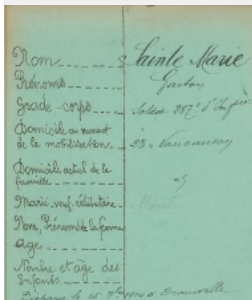 Nom Sainte Marie
Prénoms Gaston
Grade - corps Soldat 287e d'Infie
Domicile au moment
de la mobilisation 23
Domicile actuel de la
famille
Marié, veuf, célibataire Marié
Nom, Prénom de la femme
age
Nombre et âge des
enfants
le 15 7bre 1914 à